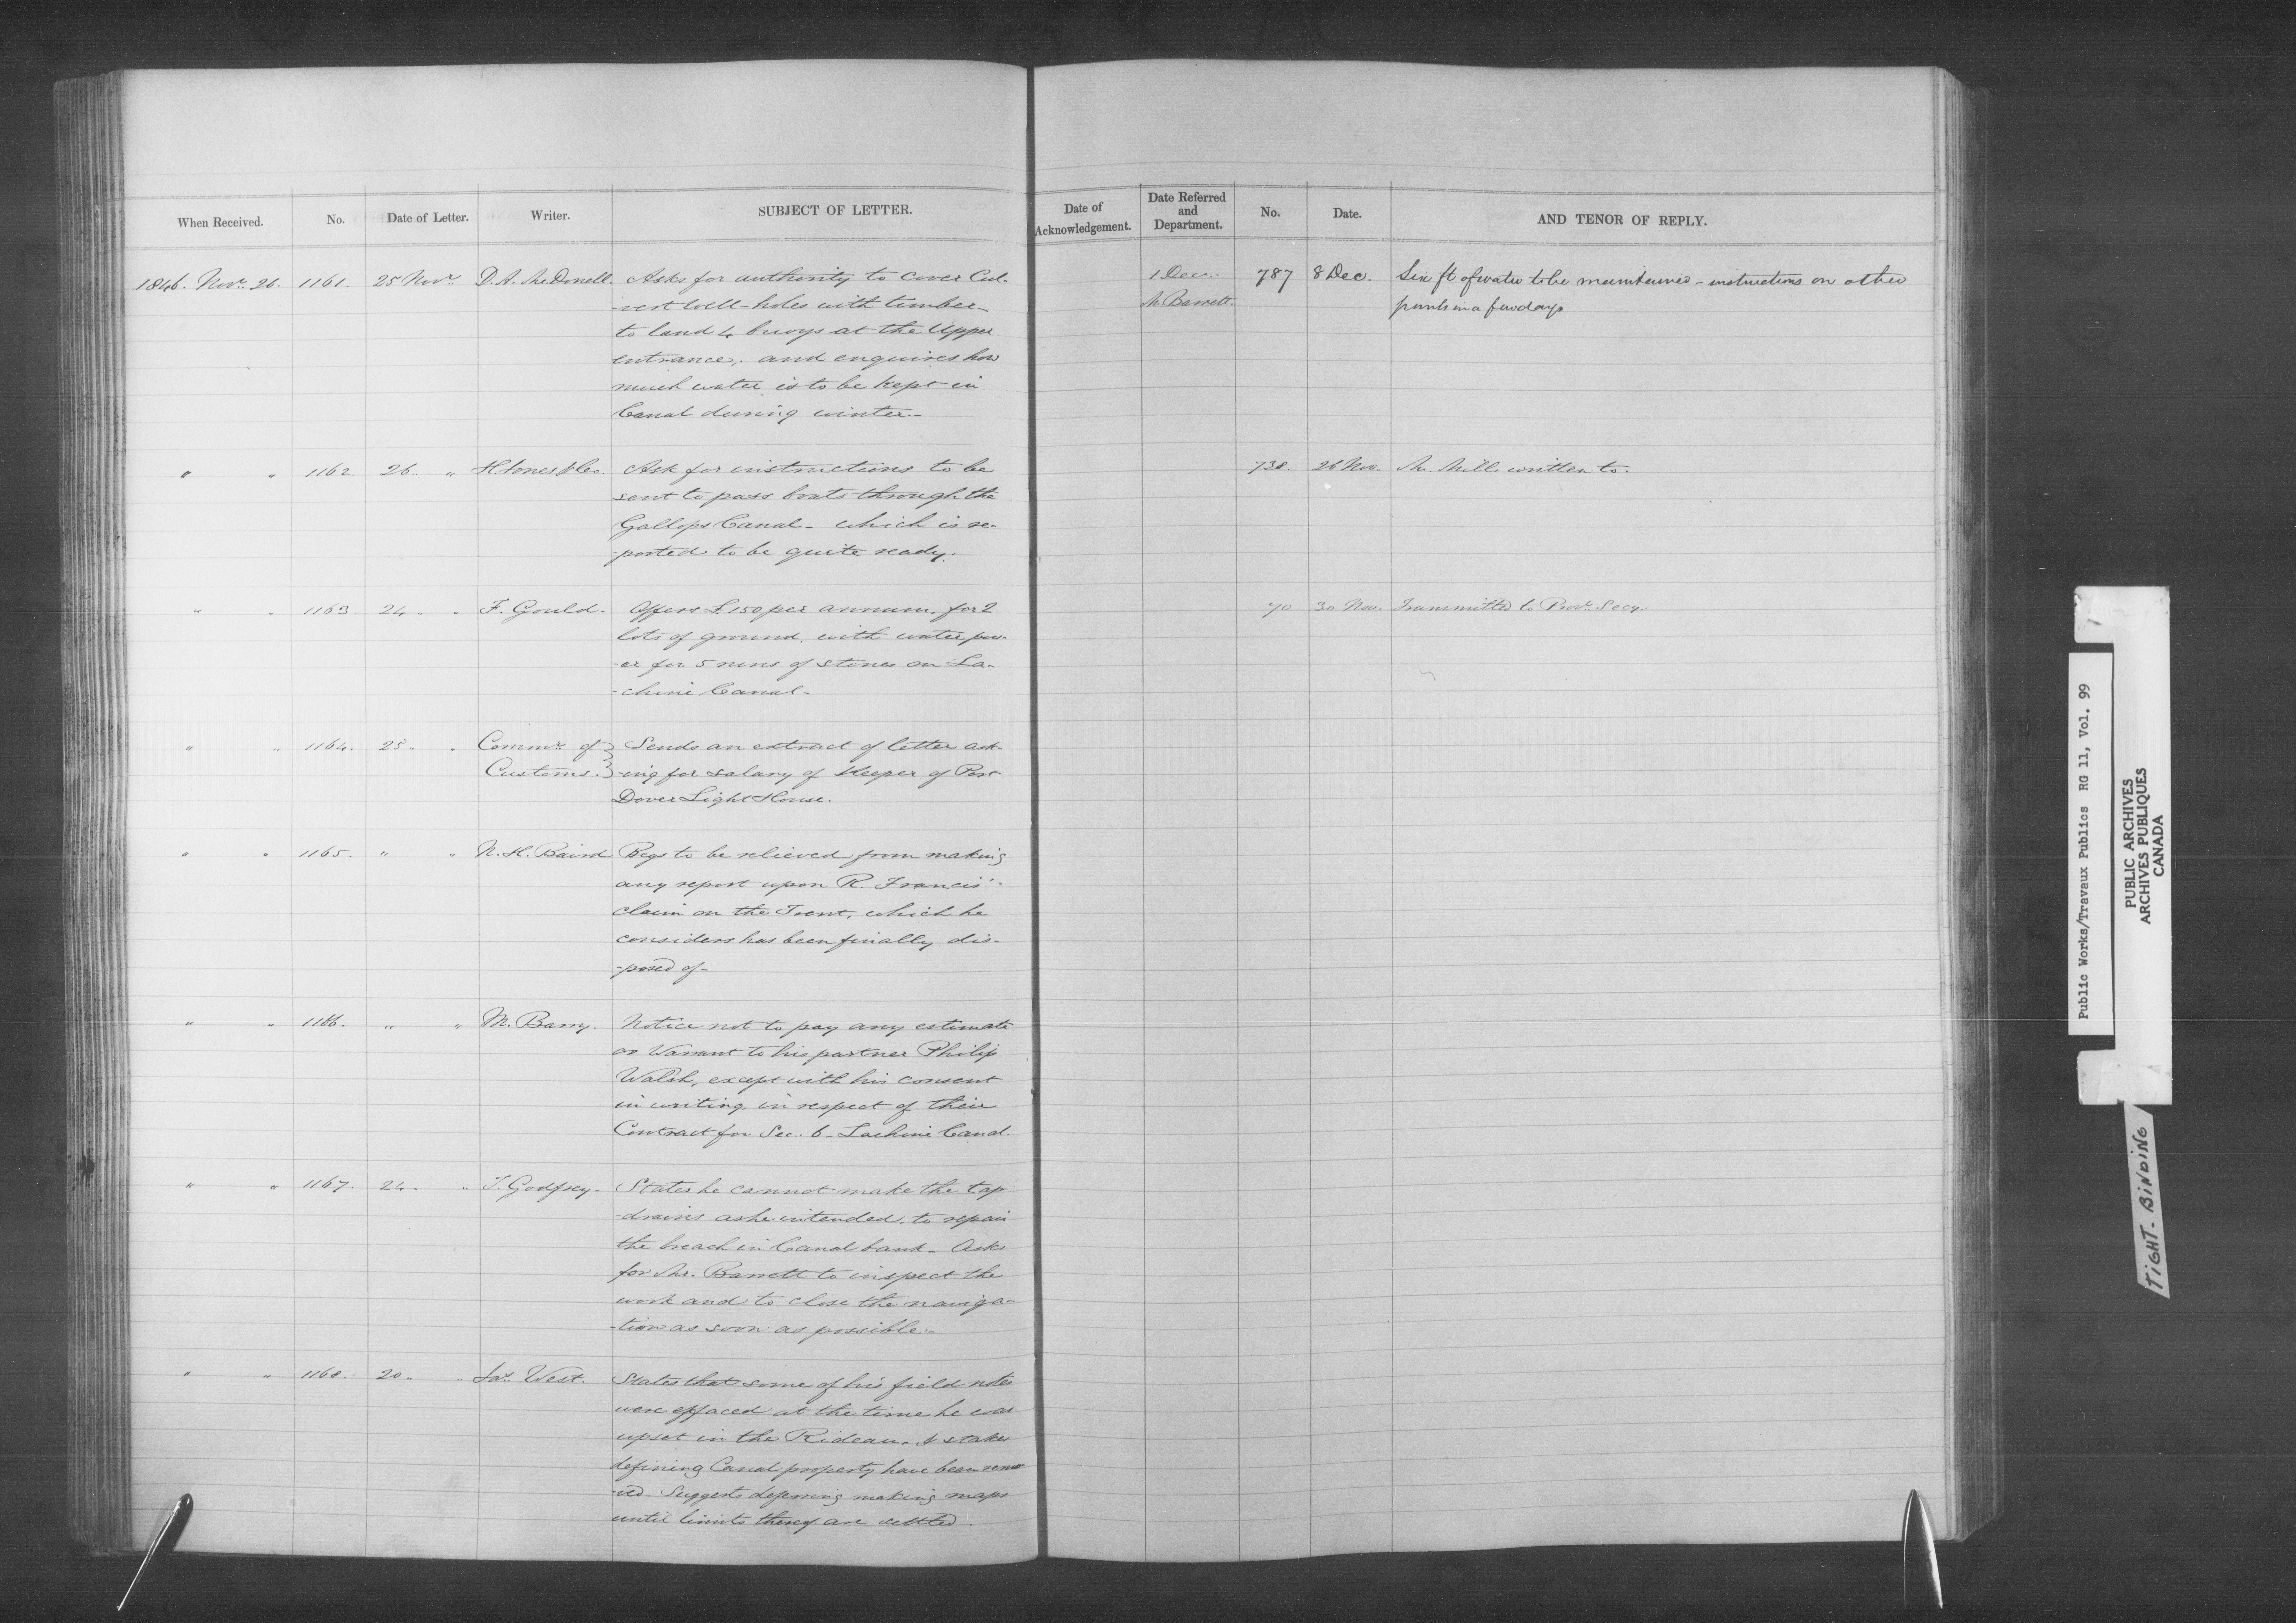 When Received. No. Date of Letter. Writer. SUBJECT OF LETTER.
1846. Novr. 26. 1161. 25 Novr. D. A. McDonell. Asks for authority to cover Cul-
-vert well-holes with timber-
to land 4 buoys at the Upper
entrance, and enquires how
much water is to be kept in
Canal during winter.-
" " 1162. 26. " H Jones & Co. Ask for instructions to be
sent to pass boats through the
Gallops Canal - which is re-
-ported to be quite ready.
" " 1163 24 " F. Gould. Offers £150 per annum, for 2
lots of ground, with water pow-
-er for 5 runs of stones on La-
-chine Canal-
" " 1164. 25. " Commr. of Sends an extract of letter ask-
Customs. -ing for salary of Keeper of Port
Dover Light House.
" " 1165. " " N. H. Baird Begs to be relieved from making
any report upon R. Francis'
claim on the Trent, which he
considers has been finally dis-
-posed of-
" " 1166. " " M. Barry. Notice not to pay any estimate
or Warrant to his partner Philip
Walsh, except with his consent
in writing, in respect of their
Contract for Sec. 6 - Lachine Canal.
" " 1167. 24. " T. Godfrey. States he cannot make the tap
drains as he intended, to repair
the breach in Canal bank - Asks
for Mr. Barrett to inspect the
work and to close the naviga-
-tion as soon as possible.-
" " 1168. 20. " Jas. West. States that some of his field notes
were effaced at the time he was
upset in the Rideau, & stakes
defining Canal property have been remo-
-ved - Suggests deferring making maps
until limits thereof are settled.
Date of Acknowledgement. Date Referred and Department. No. Date. AND TENOR OF REPLY.
1 Dec. 787 8 Dec. Six ft of water to be maintained - instructions on other
Mr Barrett. points in a few days
738. 26 Nov. Mr. Mills written to.
70 30 Nov. Transmitted to Provl. Secy.
Public Works/Travaux Publics RG 11, Vol. 99
PUBLIC ARCHIVES
ARCHIVES PUBLIQUES
CANADA
TIGHT-BINDING